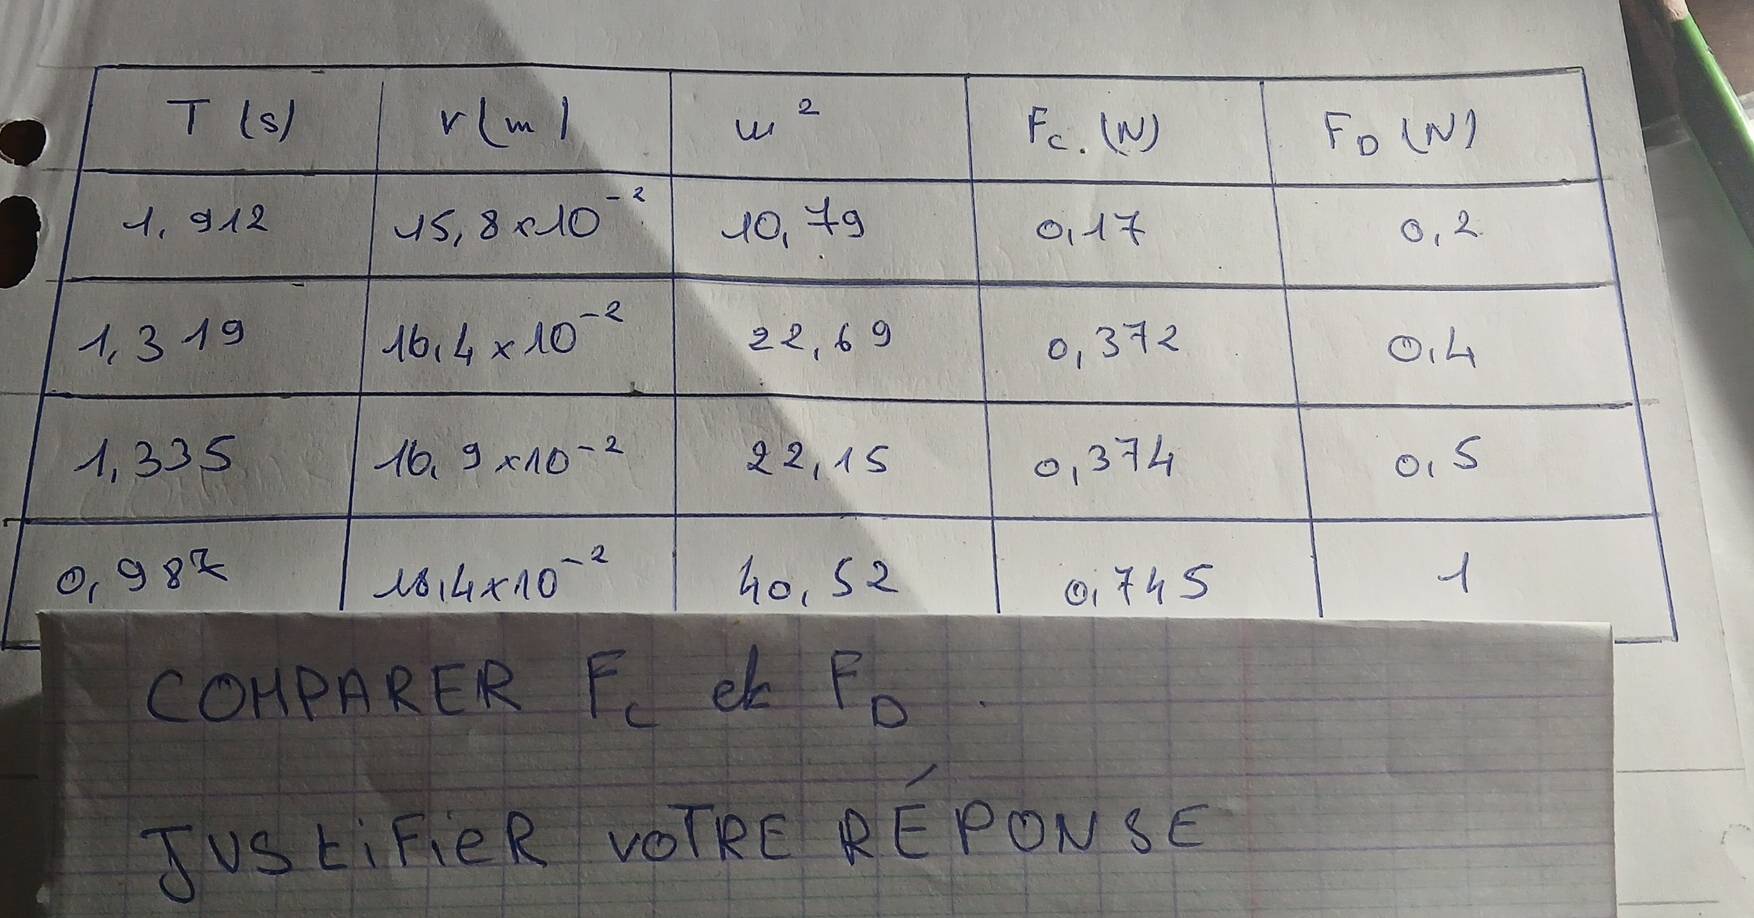 T (s) r (m) w² Fc. (N) FD (N)
1,912 15,8 x10⁻² 10,79 0,17 0,2
1,319 16,4 x 10⁻² 22,69 0,372 0,4
1,335 16,9 x10⁻² 22,15 0,374 0,5
0,987 18,4x10⁻² 40,52 0,745 1
COMPARER Fc et FD.
JUStiFieR voTRE RÉPONSE